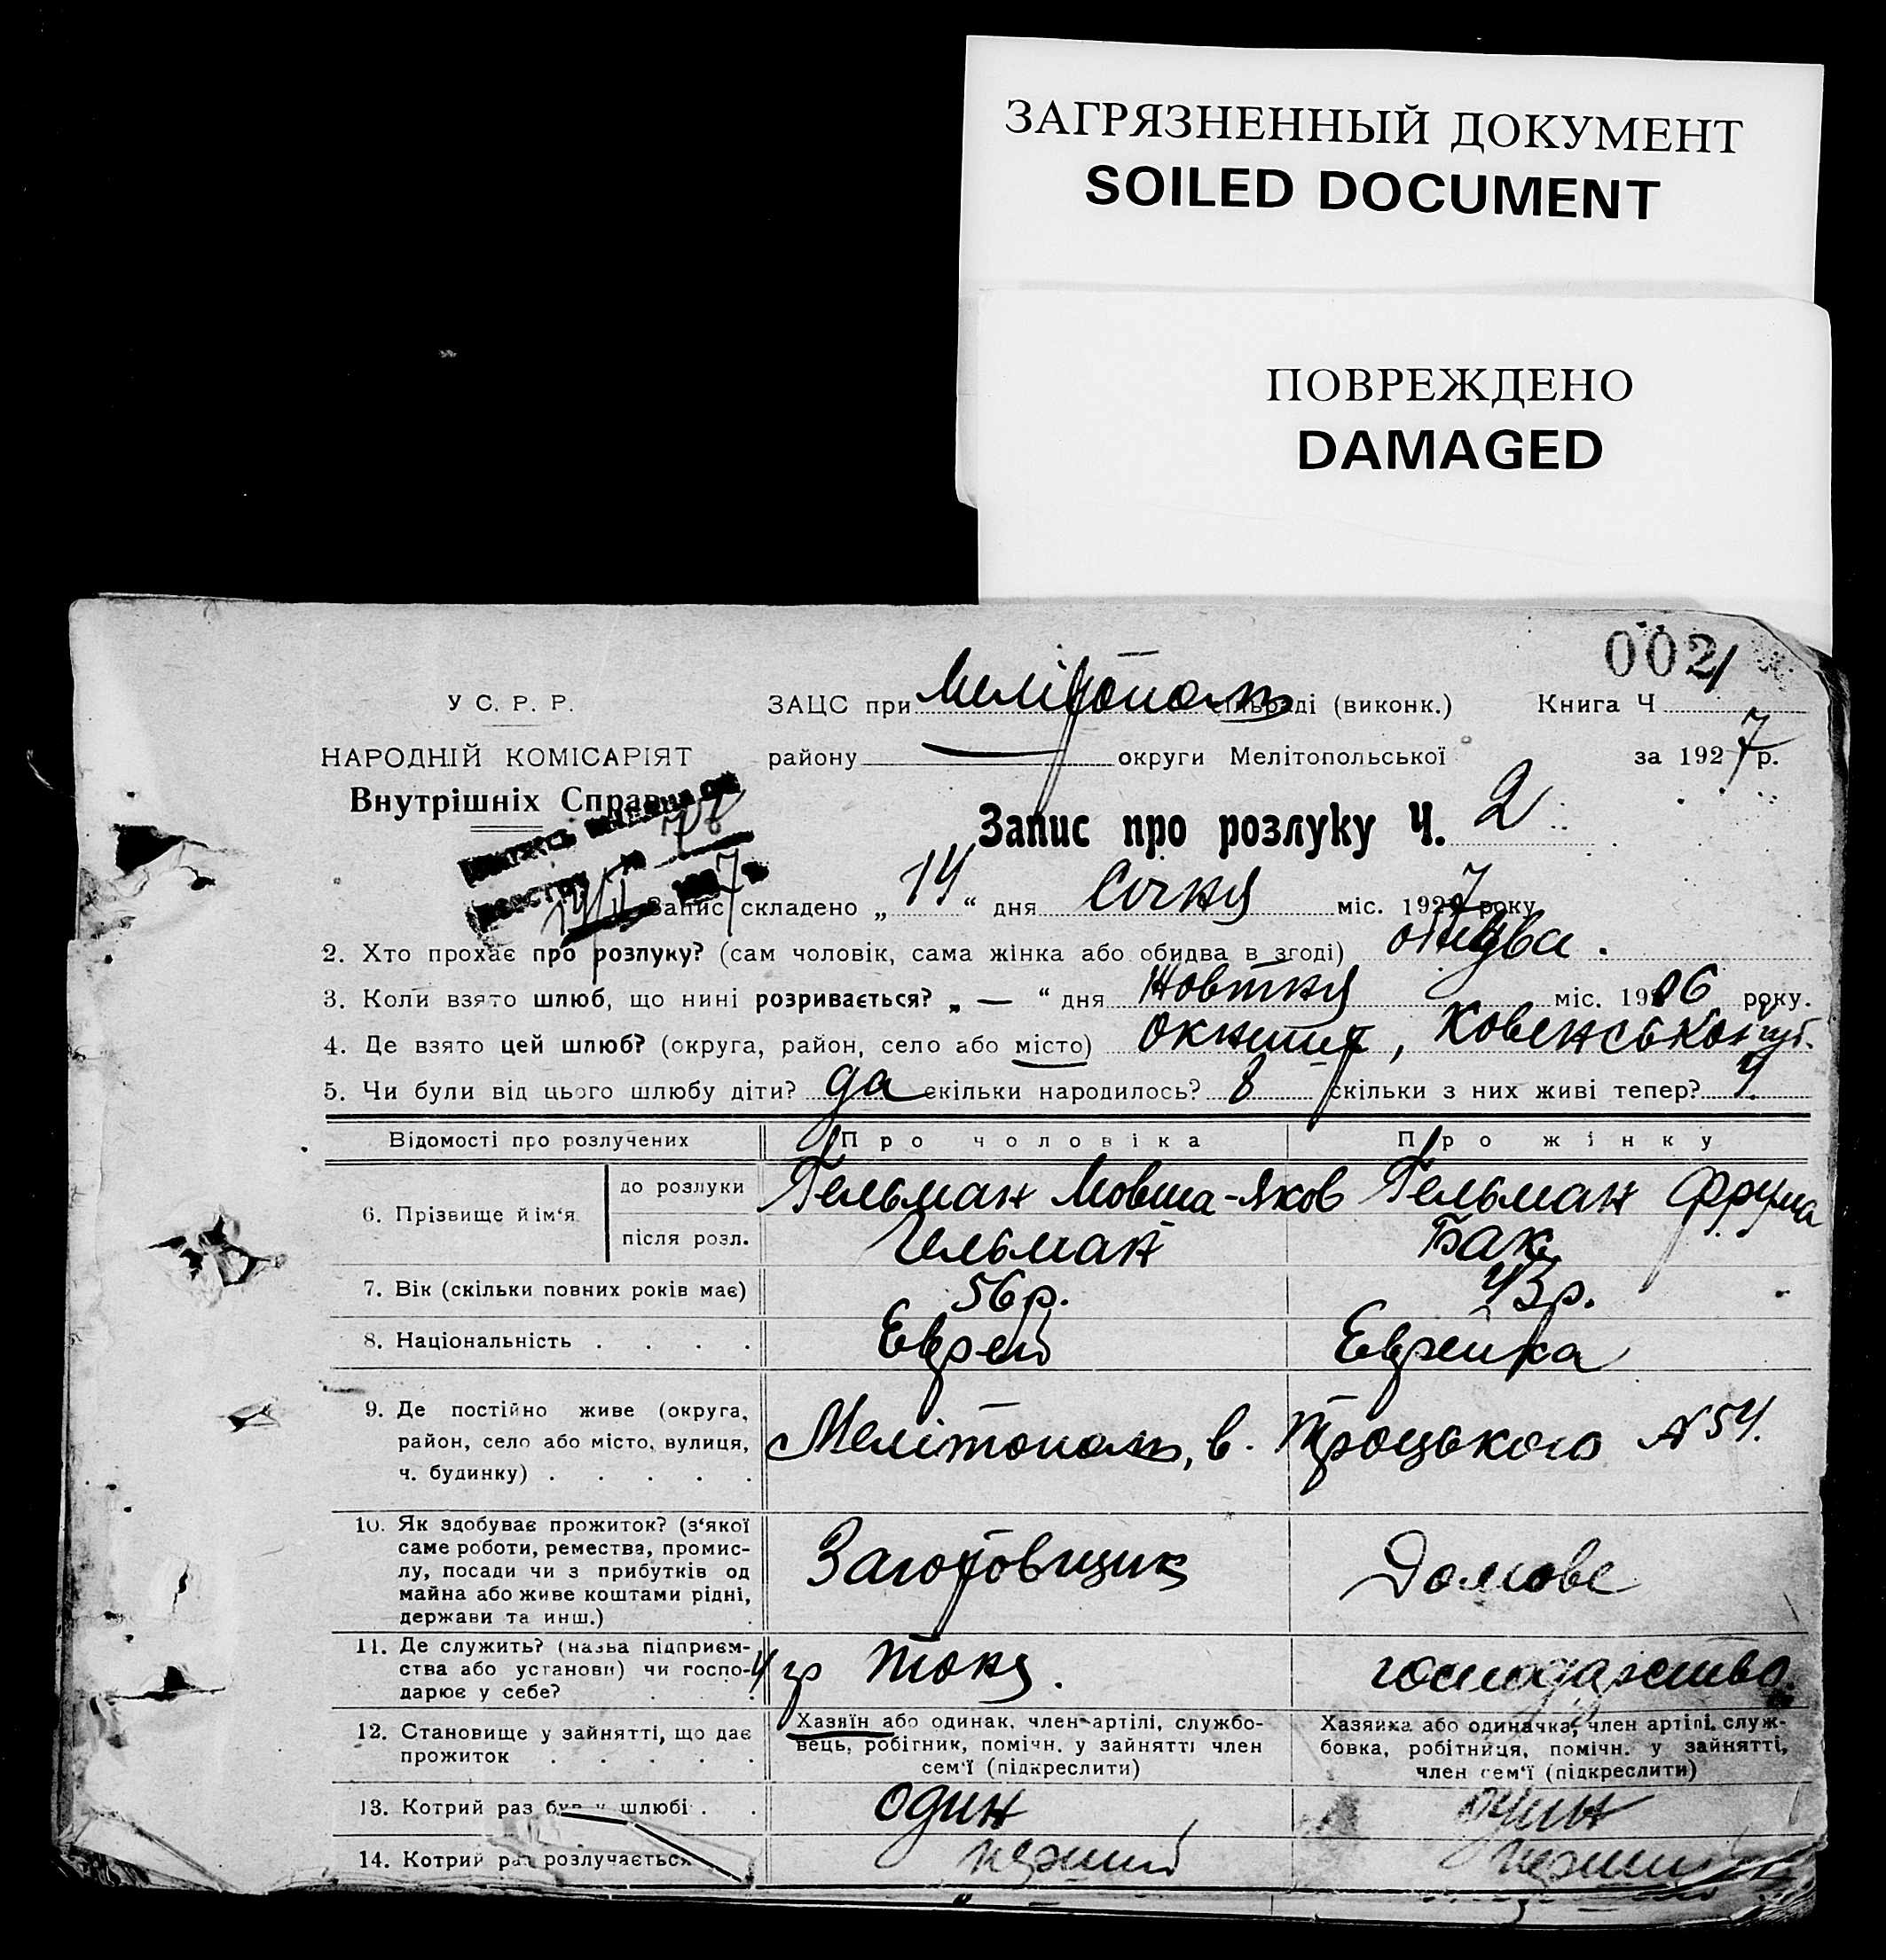 ЗАГРЯЗНЕННЫЙ ДОКУМЕНТ
SOILED DOCUMENT
ПОВРЕЖДЕНО
DAMAGED
0021
У С. Р. Р.
НАРОДНІЙ КОМІСАРІЯТ
Внутрішніх Справ
ЗАЦС при Мелітополь сільраді (виконк.) Книга Ч
району — округи Мелітопольської за 1927 р.
Запис про розлуку Ч. 2
Запис складено „14“ дня Січня міс. 1927 року
2. Хто прохає про розлуку? (сам чоловік, сама жінка або обидва в згоді) обидва.
3. Коли взято шлюб, що нині розривається? „ — “ дня Жовтня міс. 1906 року.
4. Де взято цей шлюб? (округа, район, село або місто) Окнишя, Ковенської губ.
5. Чи були від цього шлюбу діти? да скільки народилось? 8 скільки з них живі тепер? 4.
Відомості про розлучених Про чоловіка Про жінку
6. Прізвище й ім‘я до розлуки Гельман Мовша-Яков Гельман Фрума
після розл. Гельман Бак
7. Вік (скільки повних років має) 56 р. 43 р.
8. Національність . . . . Еврей Еврейка
9. Де постійно живе (округа, район, село або місто, вулиця, ч. будинку) . . . . . Мелітополь, в. Троцького № 54.
10. Як здобуває прожиток? (з‘якої
саме роботи, ремества, промис-
лу, посади чи з прибутків од
майна або живе коштами рідні,
держави та инш.)
Заготовщик
Домове
11. Де служить? (назва підприєм-
ства або установи) чи госпо-
дарює у себе?
господарство.
12. Становище у зайнятті, що дає
прожиток . . . . .
Хазяїн або одинак, член артілі, службо-
вець, робітник, помічн. у зайнятті член
сем‘ї (підкреслити)
Хазяйка або одиначка, член артілі, служ-
бовка, робітниця, помічн. у зайнятті,
член сем‘ї (підкреслити)
13. Котрий раз був у шлюбі . . один один
14. Котрий раз розлучається перший перший